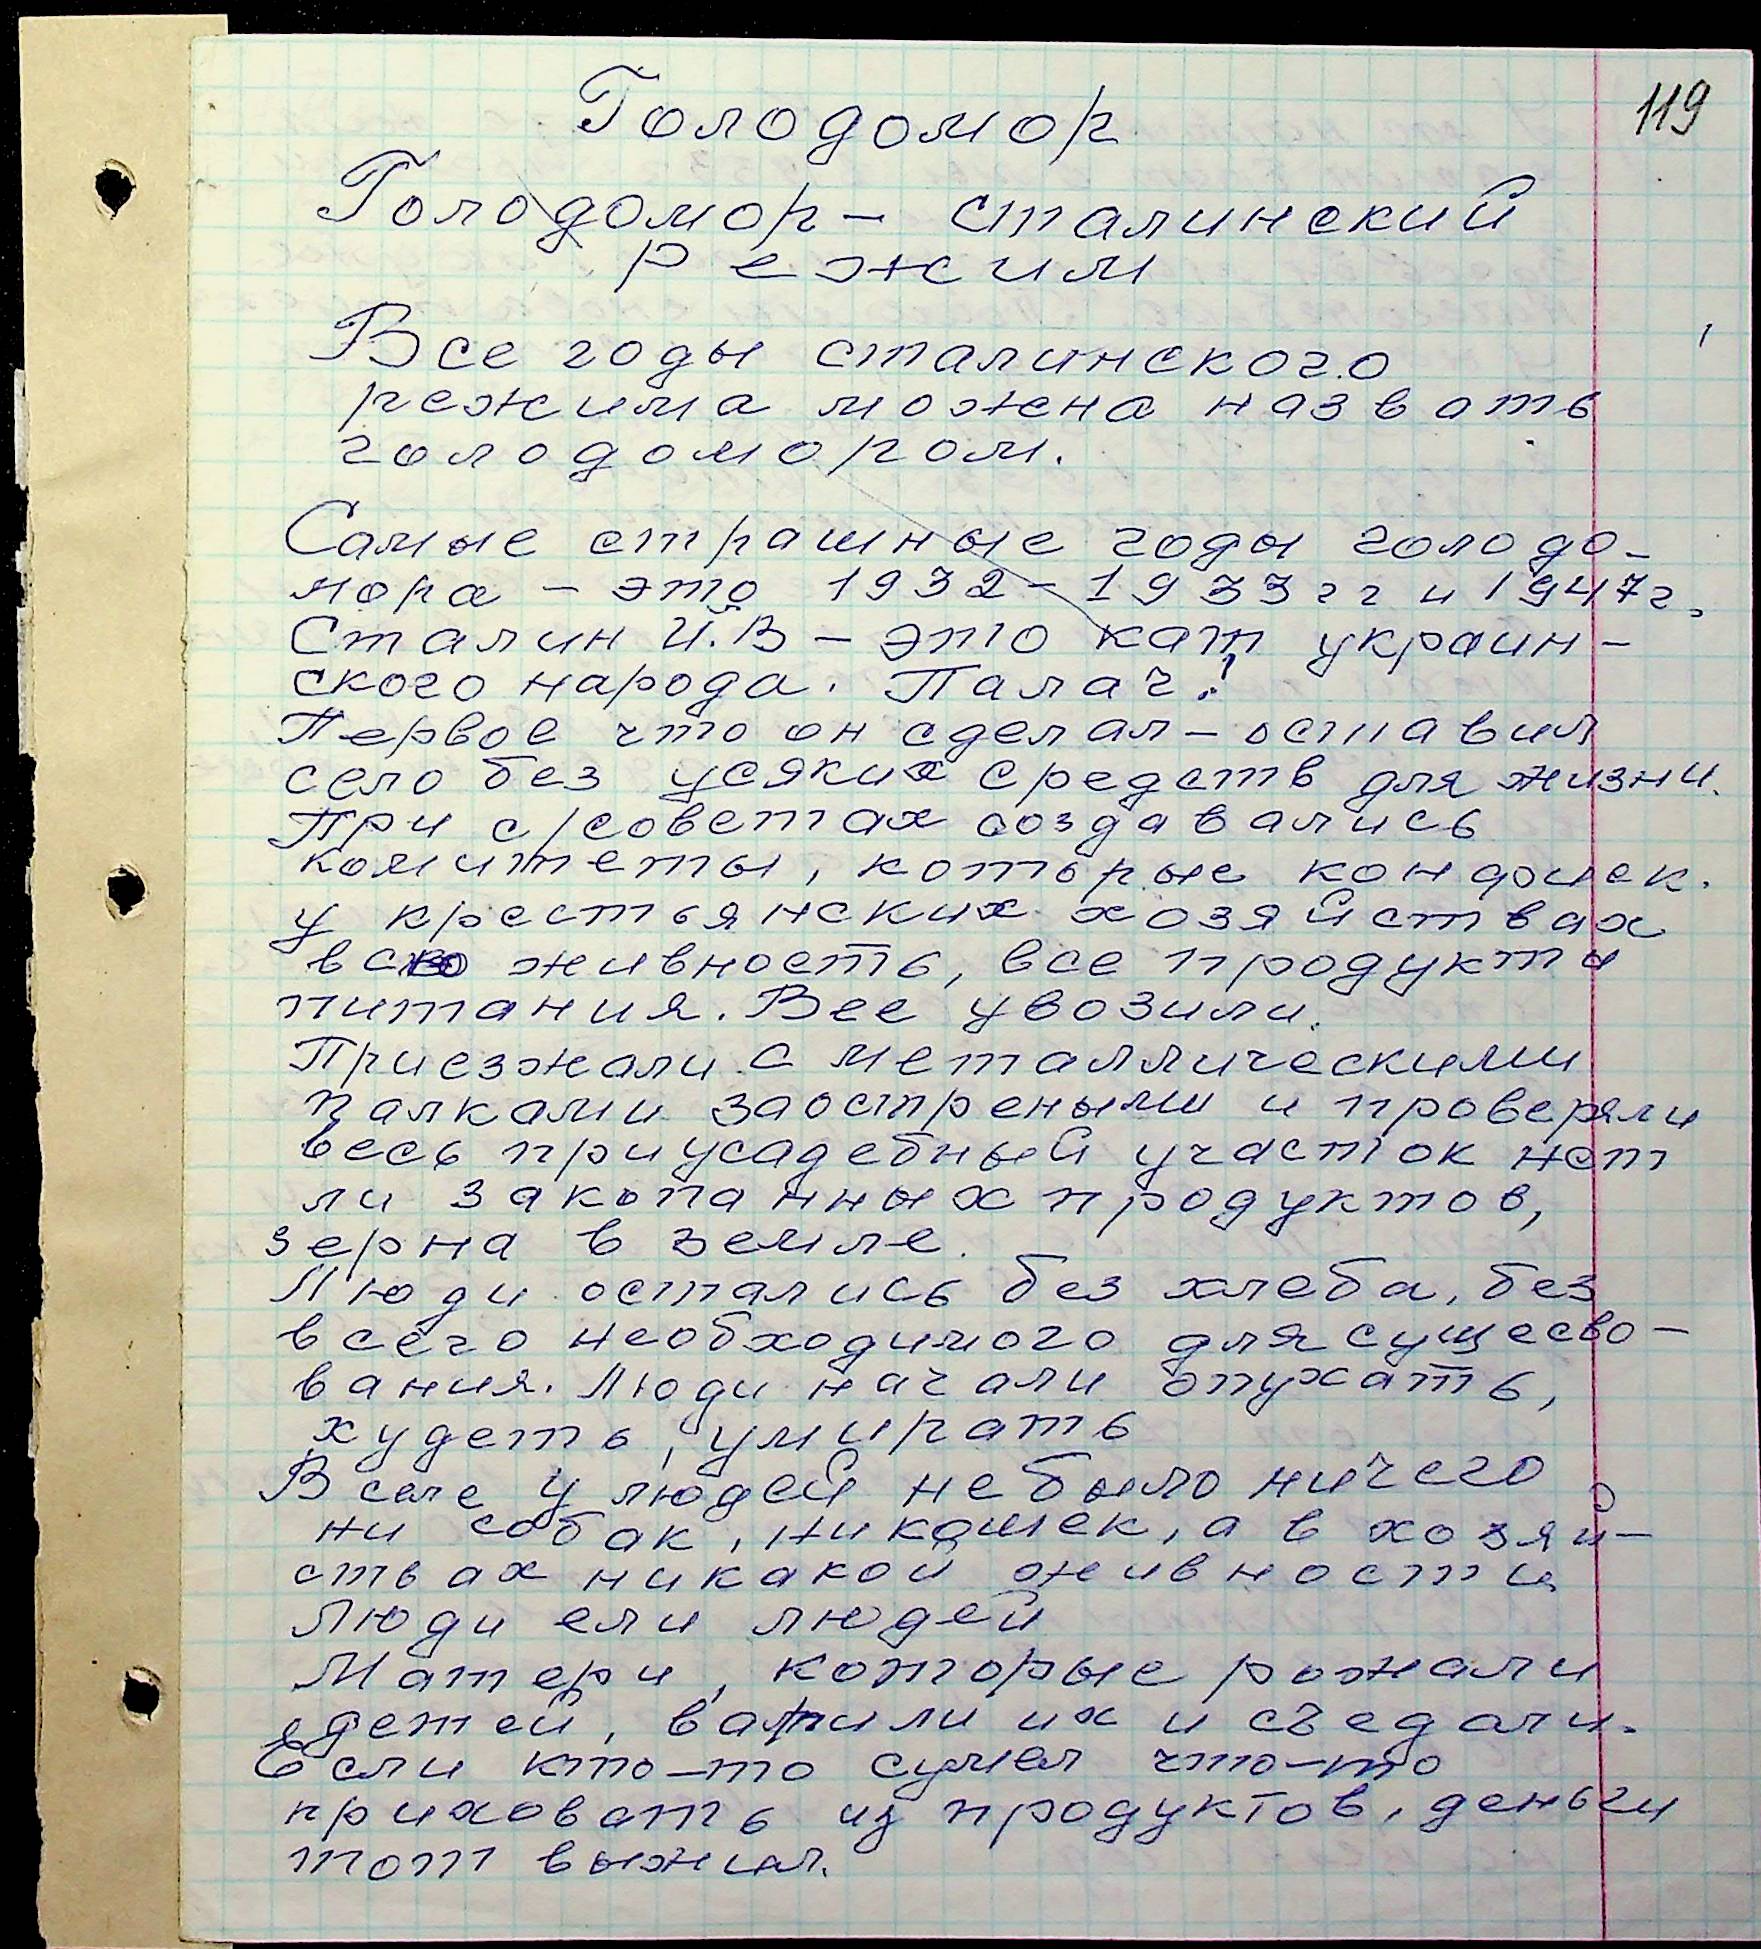 119
Голодомор
Голодомор – сталинский
режим
Все годы сталинского
режима можена назвать
голодомором.
Самые страшные годы голодо-
мора – это 1932–1933 гг и 1947г.
Сталин И.В – это кат украин-
ского народа. Палач!
Первое что он сделал – оставил
село без усяких средств для жизни.
При с/советах создавались
комитеты, которые конфиск.
у крестьянских хозяйствах
всю живность, все продукты
питания. Все увозили.
Приезжали с металлическими
палками заостреными и проверяли
весь приусадебный участок нет
ли закопанных продуктов,
зерна в земле.
Люди остались без хлеба, без
всего необходимого для сущесво-
вания. Люди начали опухать,
худеть, умирать
В селе у людей не было ничего
ни собак, ни кошек, а в хозяй-
ствах никакой живности
Люди ели людей
Матери, которые рожали
детей, варили их и съедали.
Если кто-то сумел что-то
приховать из продуктов, деньги
тот выжил.